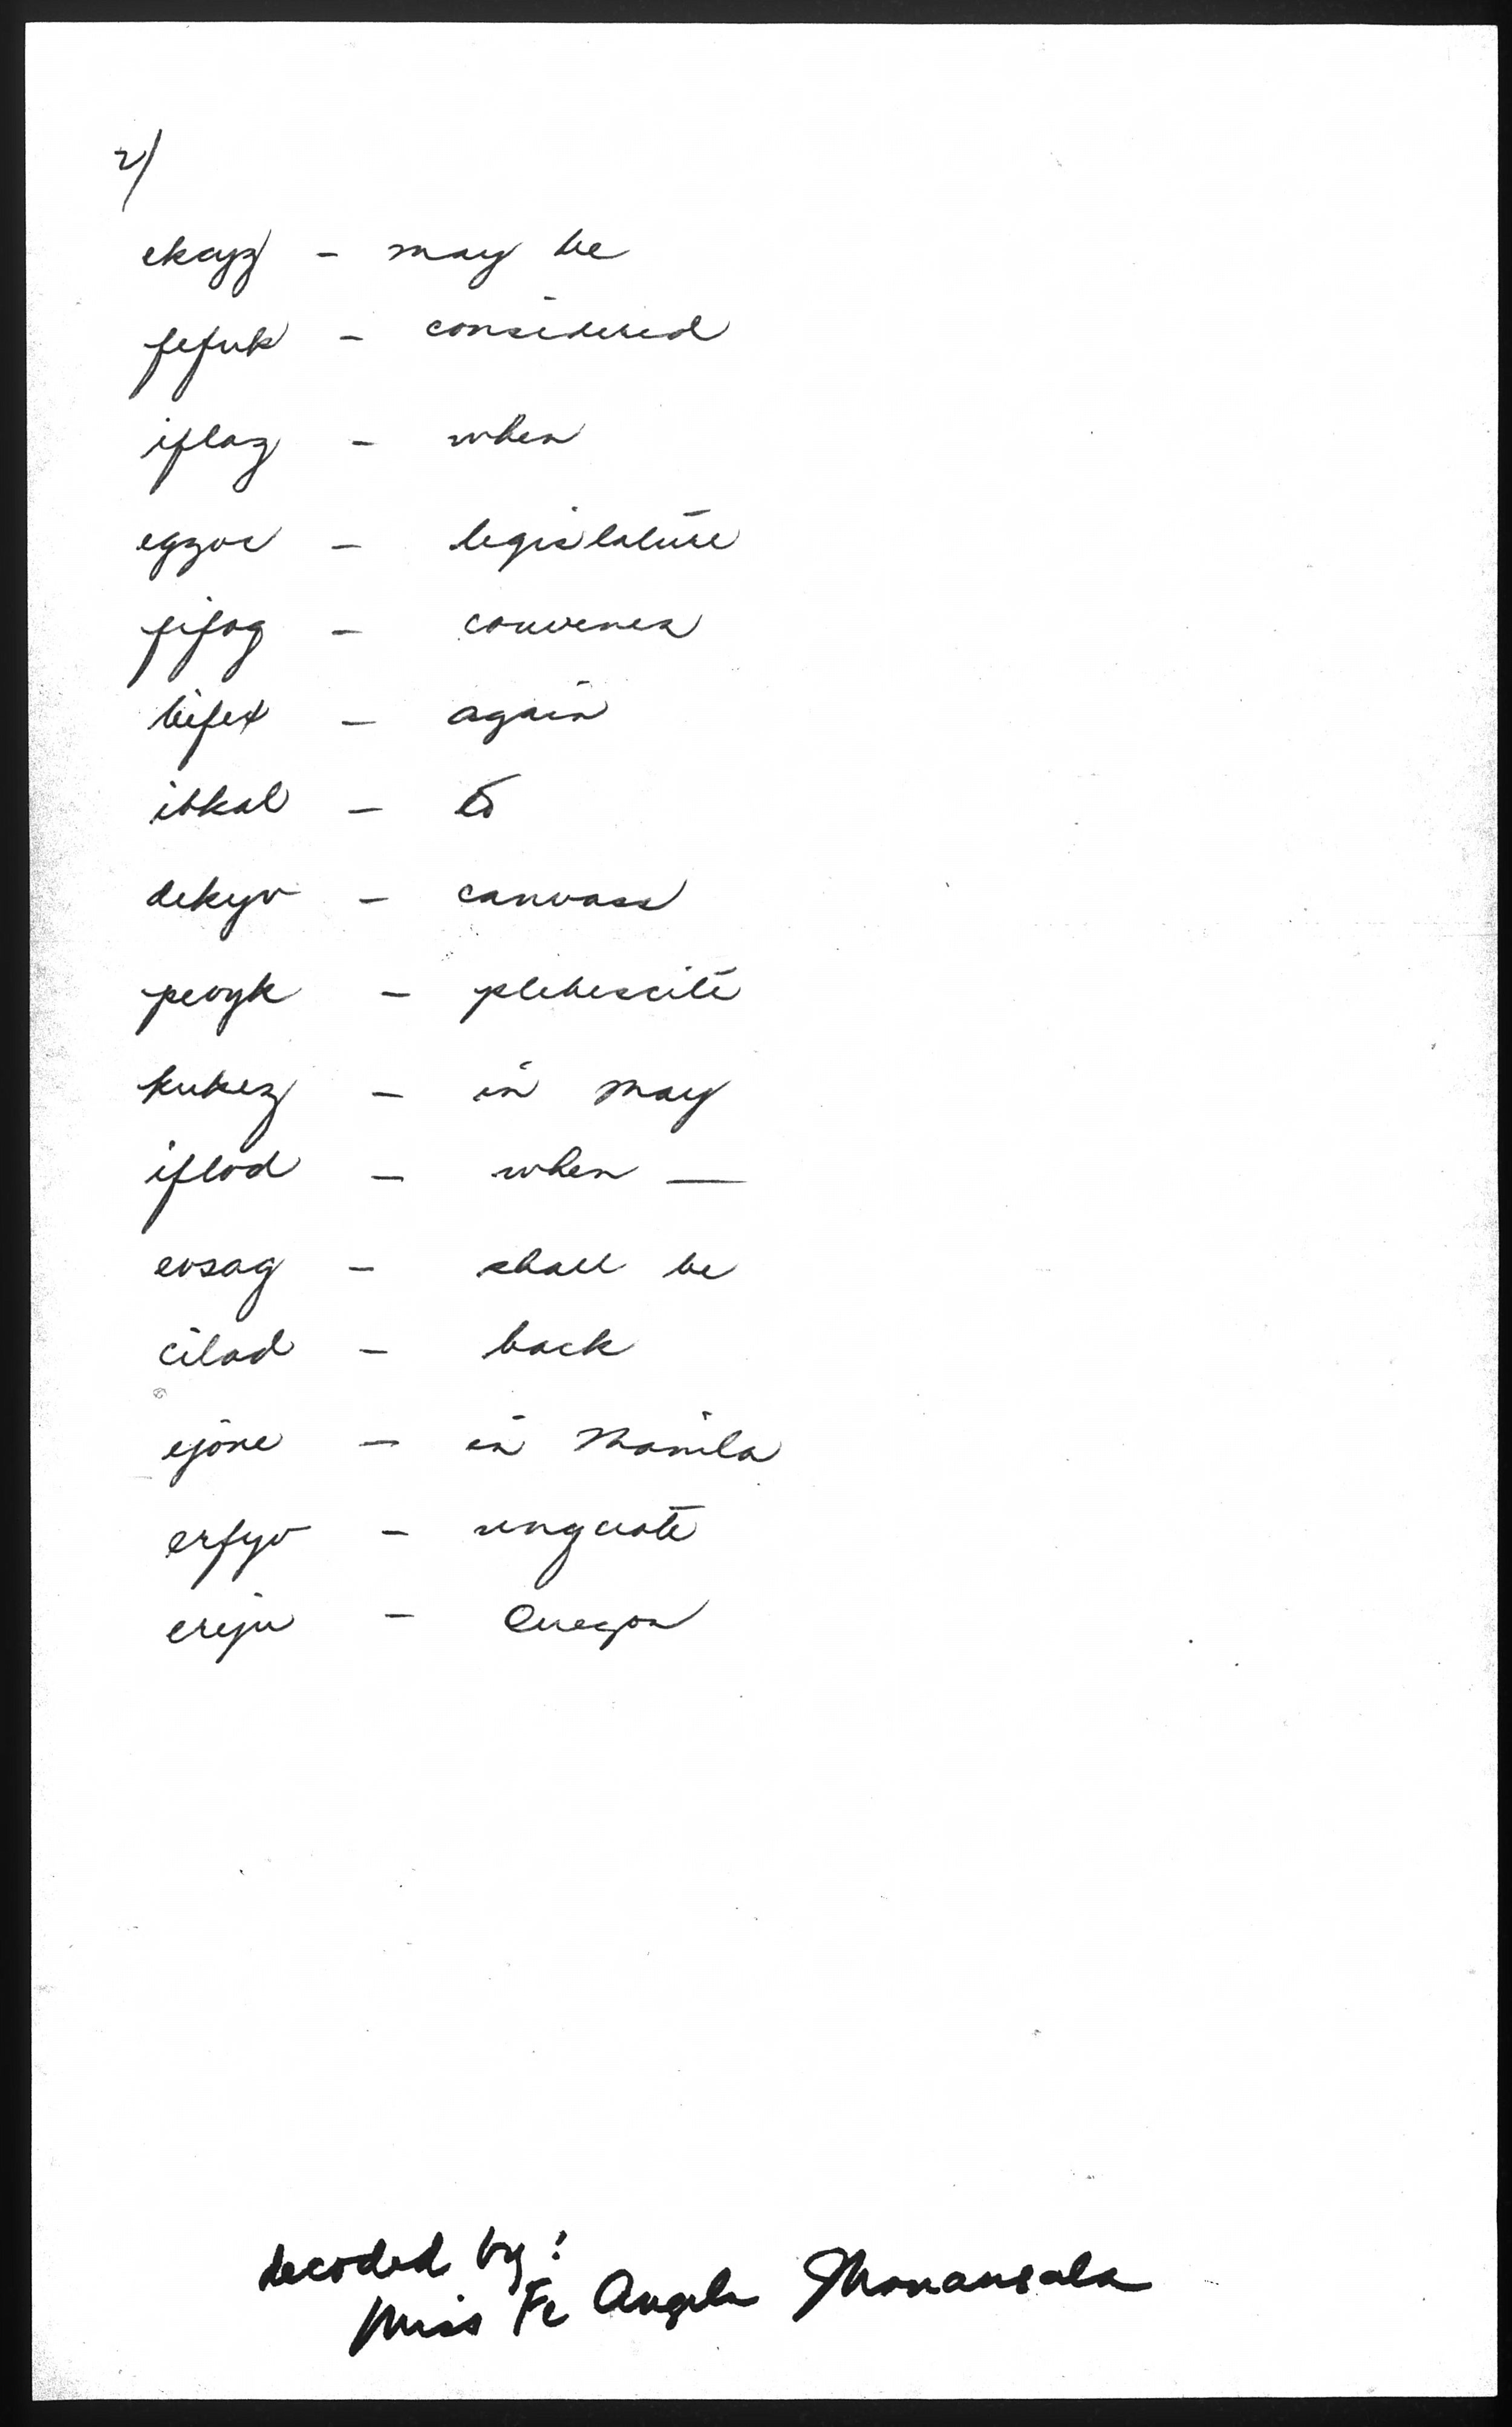 2/
ekayz - may be
fefuk - considered
iflaz - when
egzoc - legislature
fifog - convenes
bifex - again
ibkal - to
dekyv - canvass
pevyk - plebescite
kukez - in may
iflod - when —
evsag - shall be
cilad - back
ejone - in Manila
erfyv - unquote
ereju - Quezon
decoded by:
Miss Fe Angela Manansala